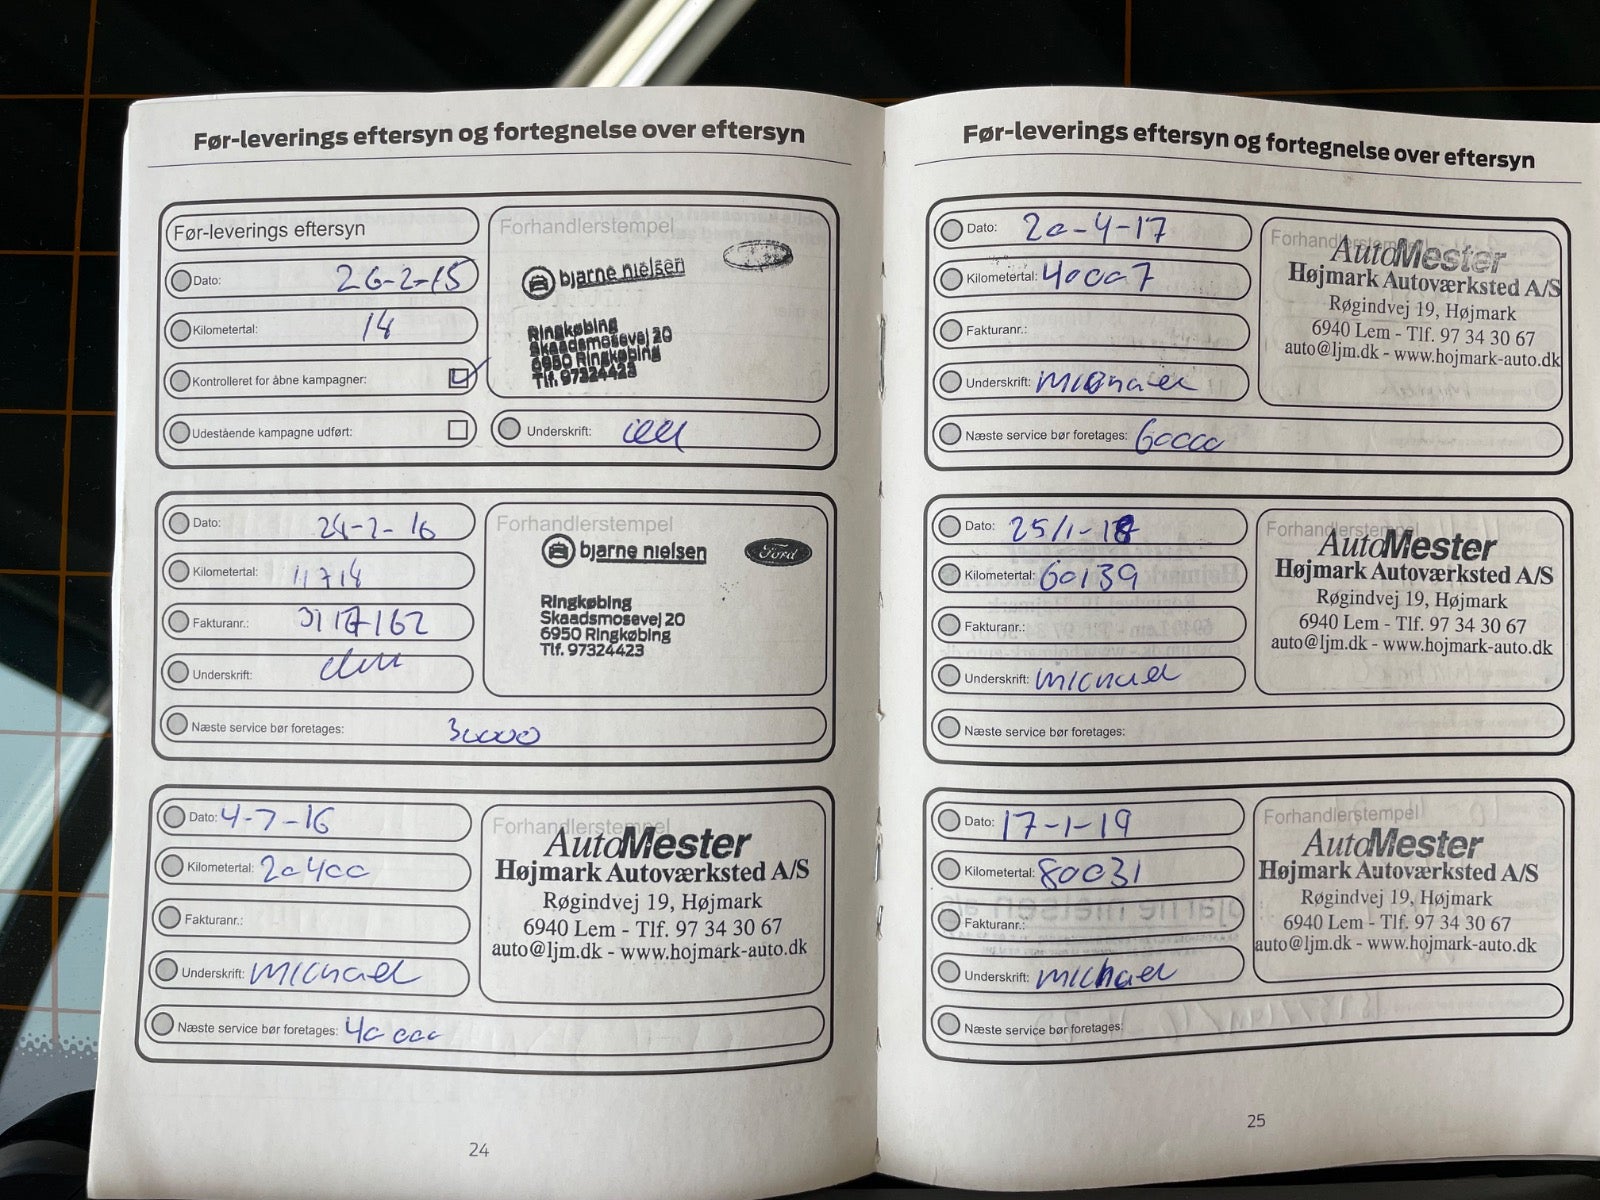 Før-leverings eftersyn og fortegnelse over eftersyn
Før-leverings eftersyn
Dato: 26-2-15
Kilometertal: 14
Kontrolleret for åbne kampagner:
Udestående kampagne udført:
Forhandlerstempel
bjarne nielsen
Ringkøbing
Skaadsmosevej 20
6950 Ringkøbing
Tlf. 97324423
Underskrift:
Dato: 24-2-16
Kilometertal: 11714
Fakturanr.:
Underskrift:
Næste service bør foretages: 30000
Forhandlerstempel
bjarne nielsen
Ford
Ringkøbing
Skaadsmosevej 20
6950 Ringkøbing
Tlf. 97324423
Dato: 4-7-16
Kilometertal: 20400
Fakturanr.:
Underskrift: Michael
Næste service bør foretages: 40000
Forhandlerstempel
AutoMester
Højmark Autoværksted A/S
Røgindvej 19, Højmark
6940 Lem - Tlf. 97 34 30 67
auto@ljm.dk - www.hojmark-auto.dk
24
Før-leverings eftersyn og fortegnelse over eftersyn
Dato: 20-4-17
Kilometertal: 40007
Fakturanr.:
Underskrift: Michael
Næste service bør foretages: 60000
Forhandlerstempel
AutoMester
Højmark Autoværksted A/S
Røgindvej 19, Højmark
6940 Lem - Tlf. 97 34 30 67
auto@ljm.dk - www.hojmark-auto.dk
Dato: 25/1-18
Kilometertal: 60139
Fakturanr.:
Underskrift: Michael
Næste service bør foretages:
Forhandlerstempel
AutoMester
Højmark Autoværksted A/S
Røgindvej 19, Højmark
6940 Lem - Tlf. 97 34 30 67
auto@ljm.dk - www.hojmark-auto.dk
Dato: 17-1-19
Kilometertal: 80031
Fakturanr.:
Underskrift: Michael
Næste service bør foretages:
Forhandlerstempel
AutoMester
Højmark Autoværksted A/S
Røgindvej 19, Højmark
6940 Lem - Tlf. 97 34 30 67
auto@ljm.dk - www.hojmark-auto.dk
25